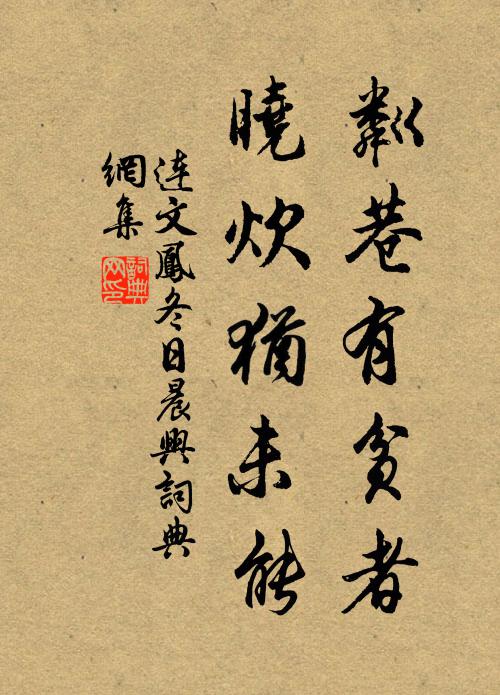 鄰巷有貧者
曉炊猶未能
連文鳳冬日晨興詞典
網集
詞典
网印